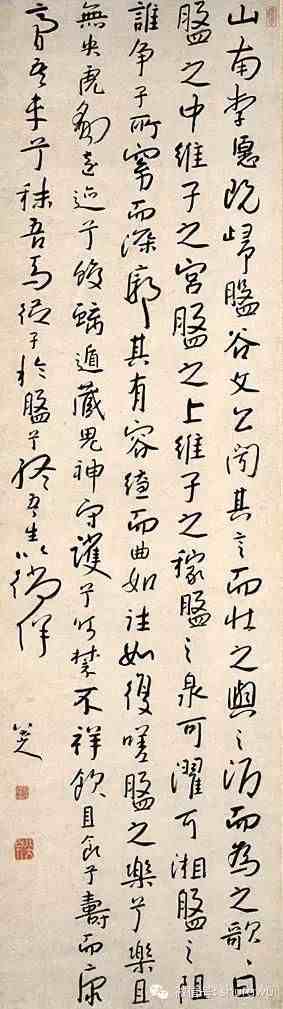 山南李愿既歸盤谷文公聞其言而壯之與之酒而為之歌、曰
盤之中維子之宮盤之上維子之稼盤之泉可濯可湘盤之阻
誰爭子所窈而深廓其有容繚而曲如往如復嗟盤之樂兮樂且
無央虎豹遠迹兮蛟螭遁藏鬼神守護兮呵禁不祥飲且食兮壽而康
膏吾車兮秣吾馬從子於盤兮終吾生以徜徉
八大山人
微信号: